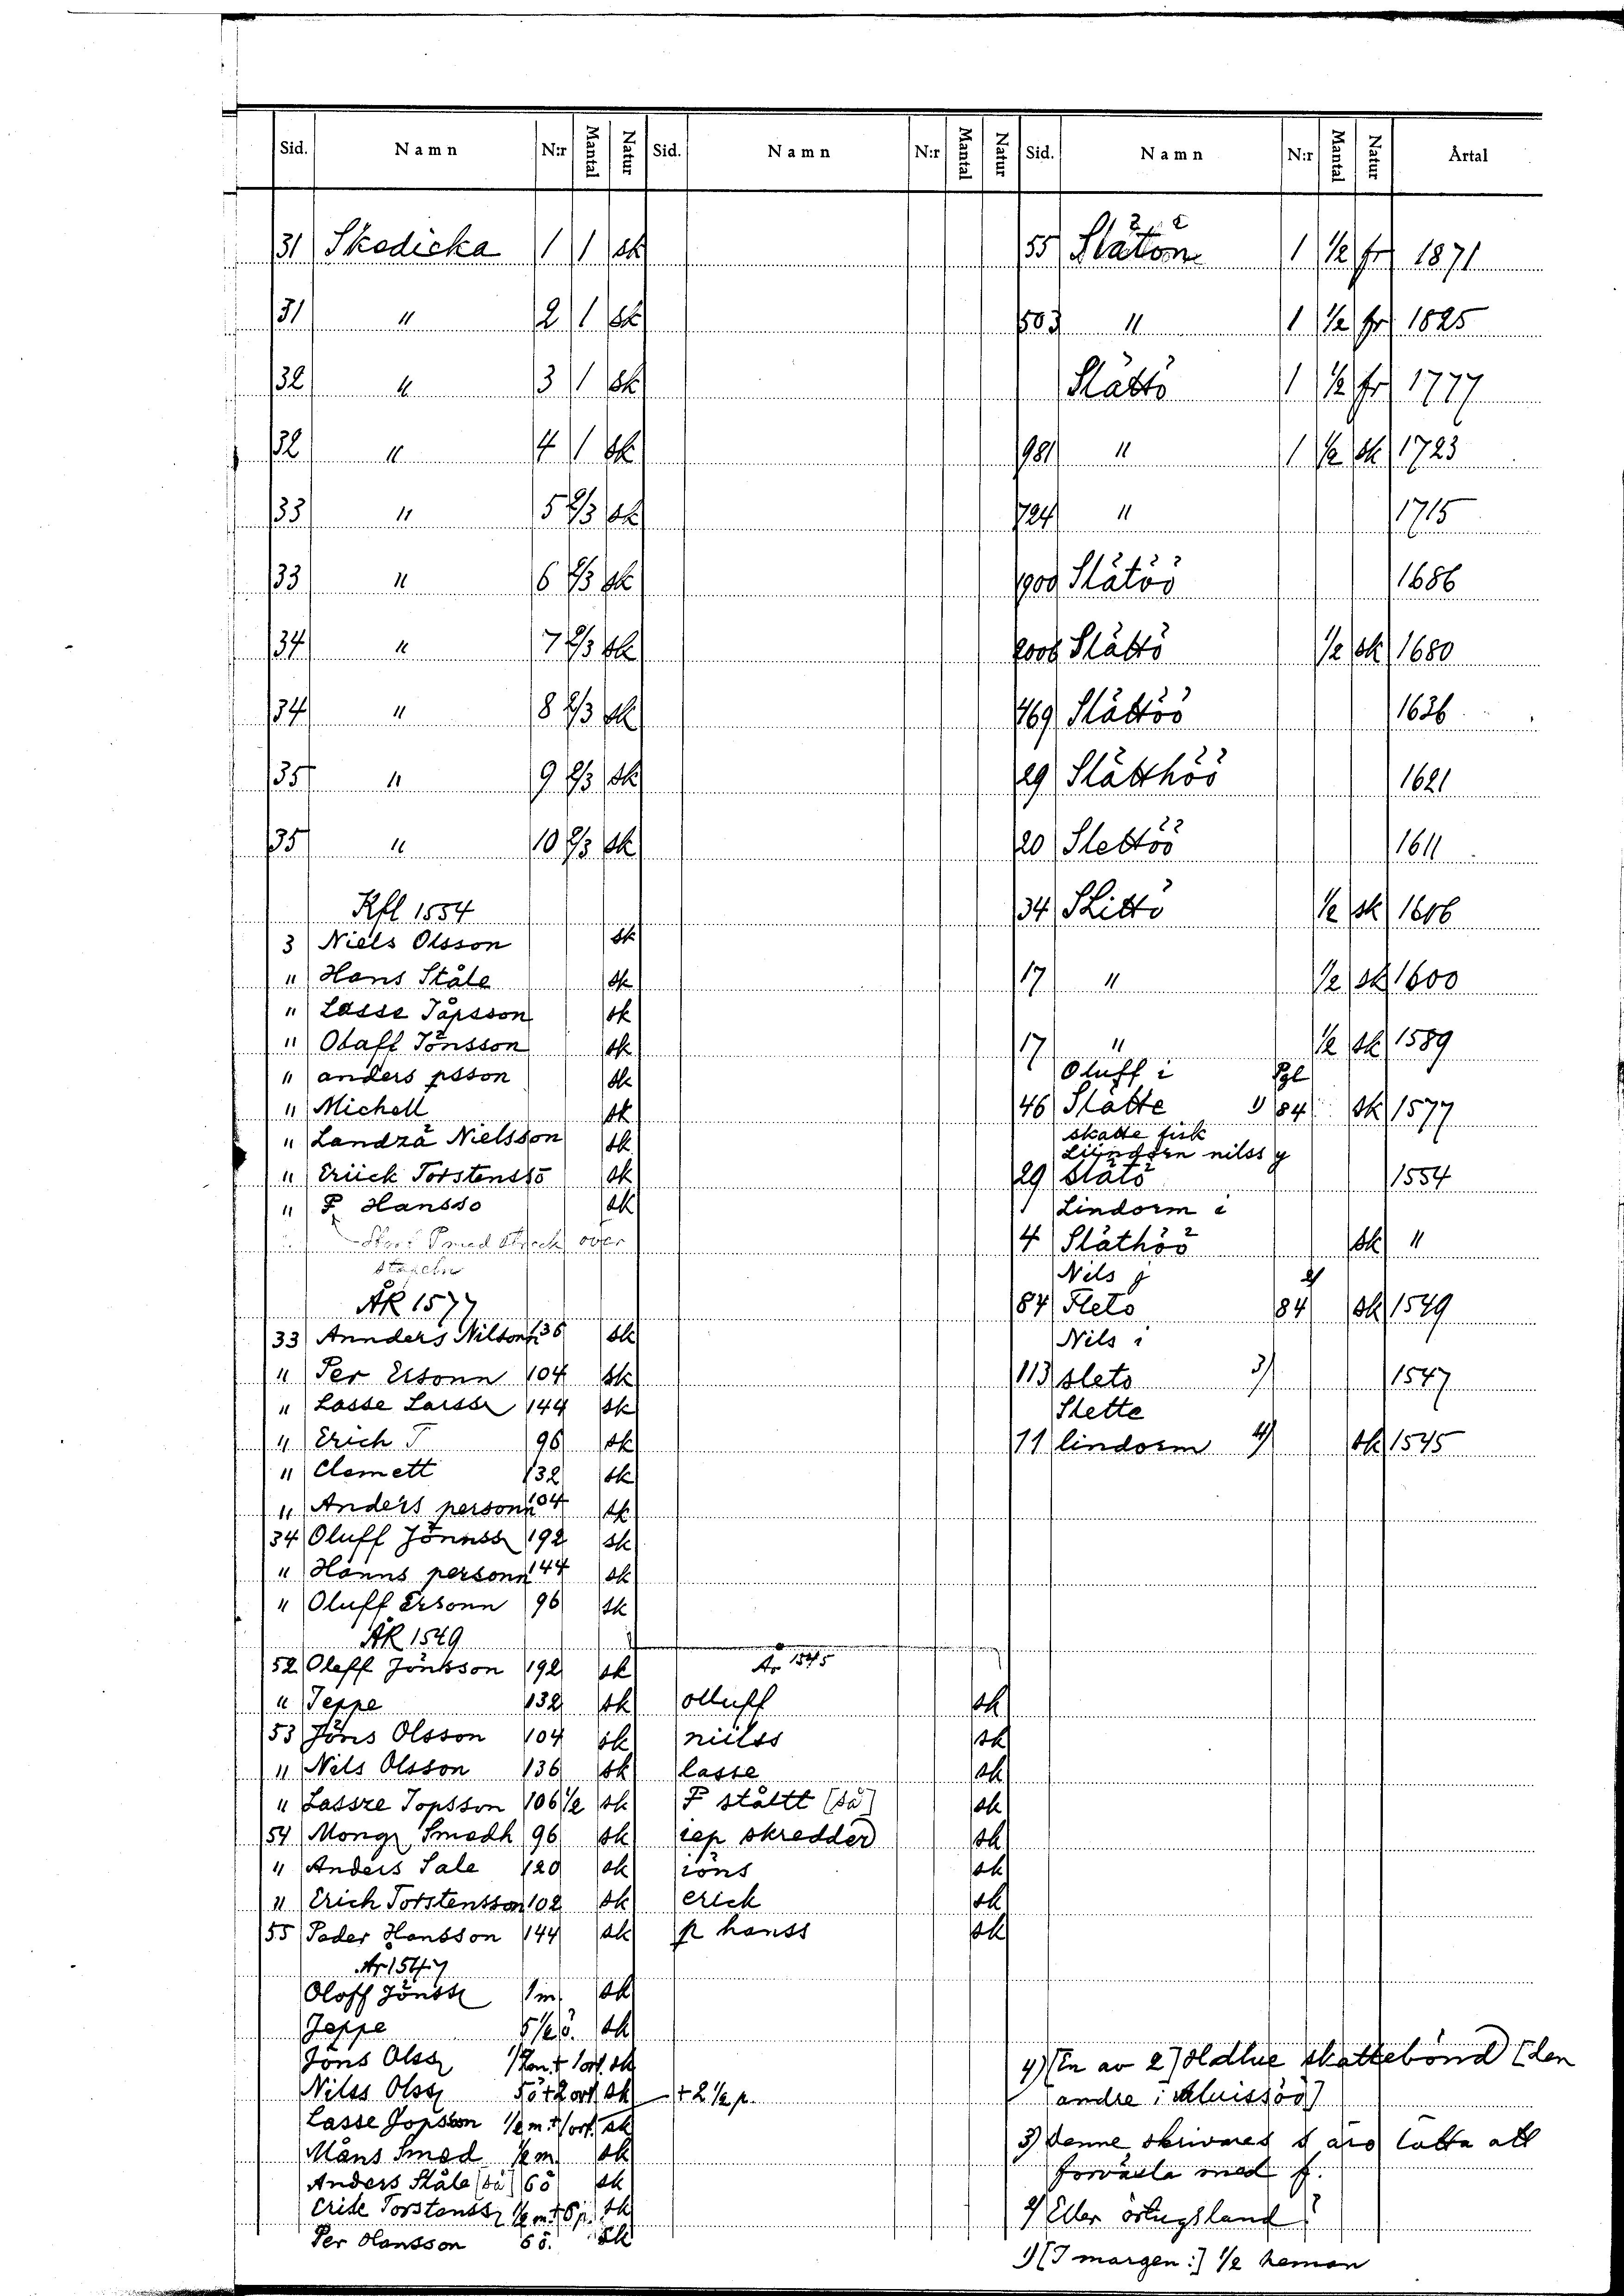 Sid. Namn N:r Mantal Natur Sid. Namn N:r Mantal Natur Sid. Namn N:r Mantal Natur Årtal
31 Skedicka 1 1 sk
31 " 2 1 sk
32 " 3 1 sk
32 " 4 1 sk
33 " 5 2/3 sk
33 " 6 2/3 sk
34 " 7 2/3 sk
34 " 8 2/3 sk
35 " 9 2/3 sk
35 " 10 2/3 sk
Kfl 1554
3 Niels Olsson sk
" Hans Ståle sk
" Lasse Jåpsson sk
" Olaff Jönsson sk
" anders psson sk
" Michell sk
" Landzå Nielsson sk
" Eriick Torstenssö sk
" P Hansso sk
med streck över
stapeln
ÄR 1577
33 Annders Nilsonn 136 sk
" Per Ersonn 104 sk
" Lasse Larss 144 sk
" Erich T 96 sk
" Clemett 132 sk
" Anders personn 104 sk
34 Oluff Jönnss 192 sk
" Hanns personn 144 sk
" Oluff Ersonn 96 sk
ÄR 1549
52 Oleff Jönsson 192 sk
" Jeppe 132 sk
53 Jöns Olsson 104 sk
" Nils Olsson 136 sk
" Lassze Jopsson 106 1/2 sk
54 Mong Smedh 96 sk
" Anders Sale 120 sk
" Erich Torstensson 102 sk
55 Peder Hansson 144 sk
Är 1547
Oloff Jönss 1 m. sk
Jeppe 5 1/2 ö. sk
Jöns Olss 1/2 m. + 1 ort. sk
Nilss Olss 5ö + 2 ort. sk + 2 1/2 p.
Lasse Jopsson 1/2 m. + 1 ort. sk
Måns Smed 1/2 m. sk
Anders Ståle [så] 6ö sk
Erik Torstenss 1/2 m. + 6 p. sk
Per Hansson 6 ö. sk
Är 1545
olluff sk
niilss sk
lasse sk
P ståltt [så] sk
iep skredder sk
iöns sk
erick sk
p hanss sk
55 Slätön 1 1/2 fr 1871
503 " 1 1/2 fr 1825
Slättö 1 1/2 fr 1777
981 " 1 1/2 sk 1723
724 " 1715
1900 Slätöö 1686
2006 Slättö 1/2 sk 1680
469 Slättöö 1636
29 Slätthöö 1621
20 Slettöö 1611
34 Slittö 1/2 sk 1606
17 " 1/2 sk 1600
17 " 1/2 sk 1589
Oluff i Pgl
46 Slätte 1) 84 sk 1577
skatte fisk
Liindorn nilss y
29 slätö 1554
Lindorm i
4 Släthöö sk "
Nils j 2)
84 Fletö 84 sk 1549
Nils i
113 sletö 3) 1547
Slette
11 lindorm 4) sk 1545
4) [En av 2] skattebönd [den
andre i]
3) Denne skrivares s äro lätta att
förväxla med f.
2) Eller örtugsland?
1) [I margen:] 1/2 heman